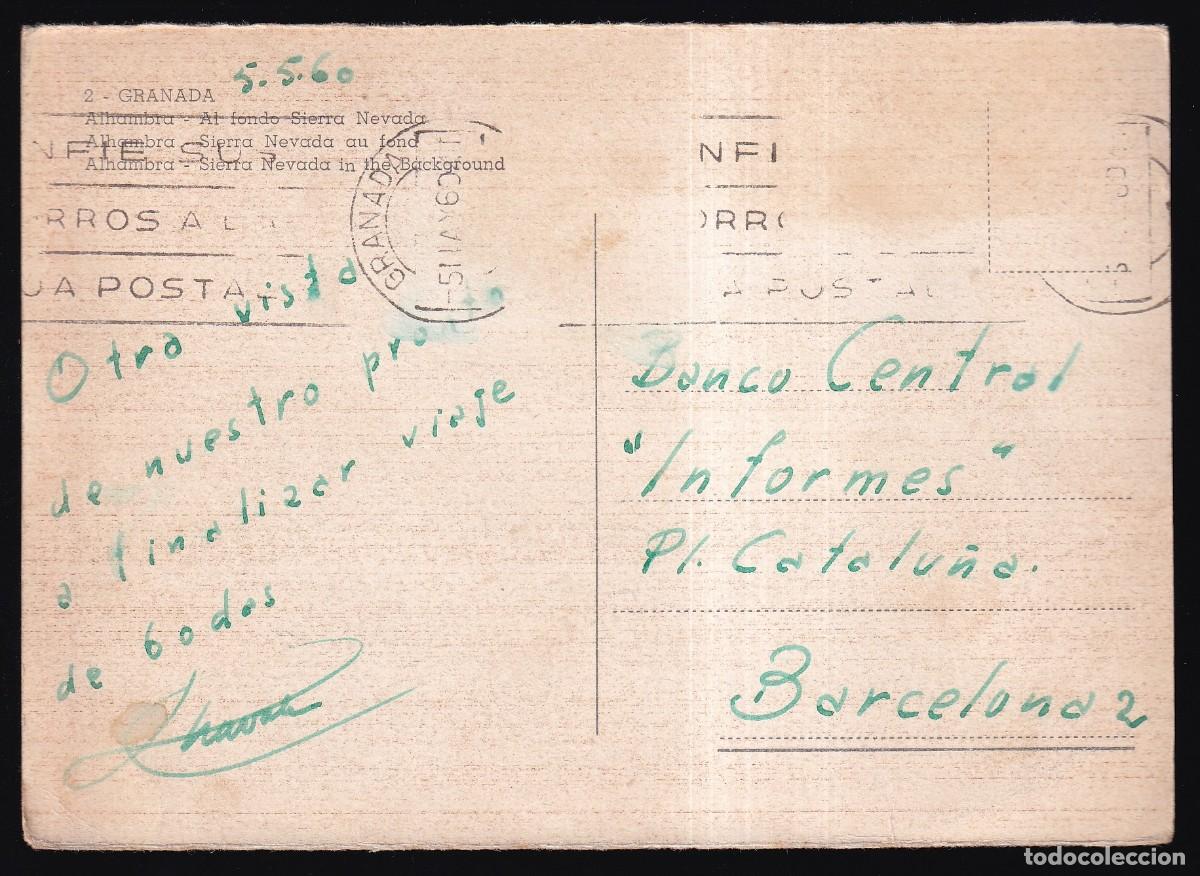 5.5.60
2 - GRANADA
Alhambra - Al fondo Sierra Nevada
Alhambra - Sierra Nevada au fond
Alhambra - Sierra Nevada in the Background
NFIE SUS
RROS A L
JA POSTAL
GRANADA
NFI
ORRO
A POSTAL
Otra vista
de nuestro pronto
a finalizar viaje
de bodas
Banco Central
"Informes"
Pl. Cataluña.
Barcelona 2
todocoleccion